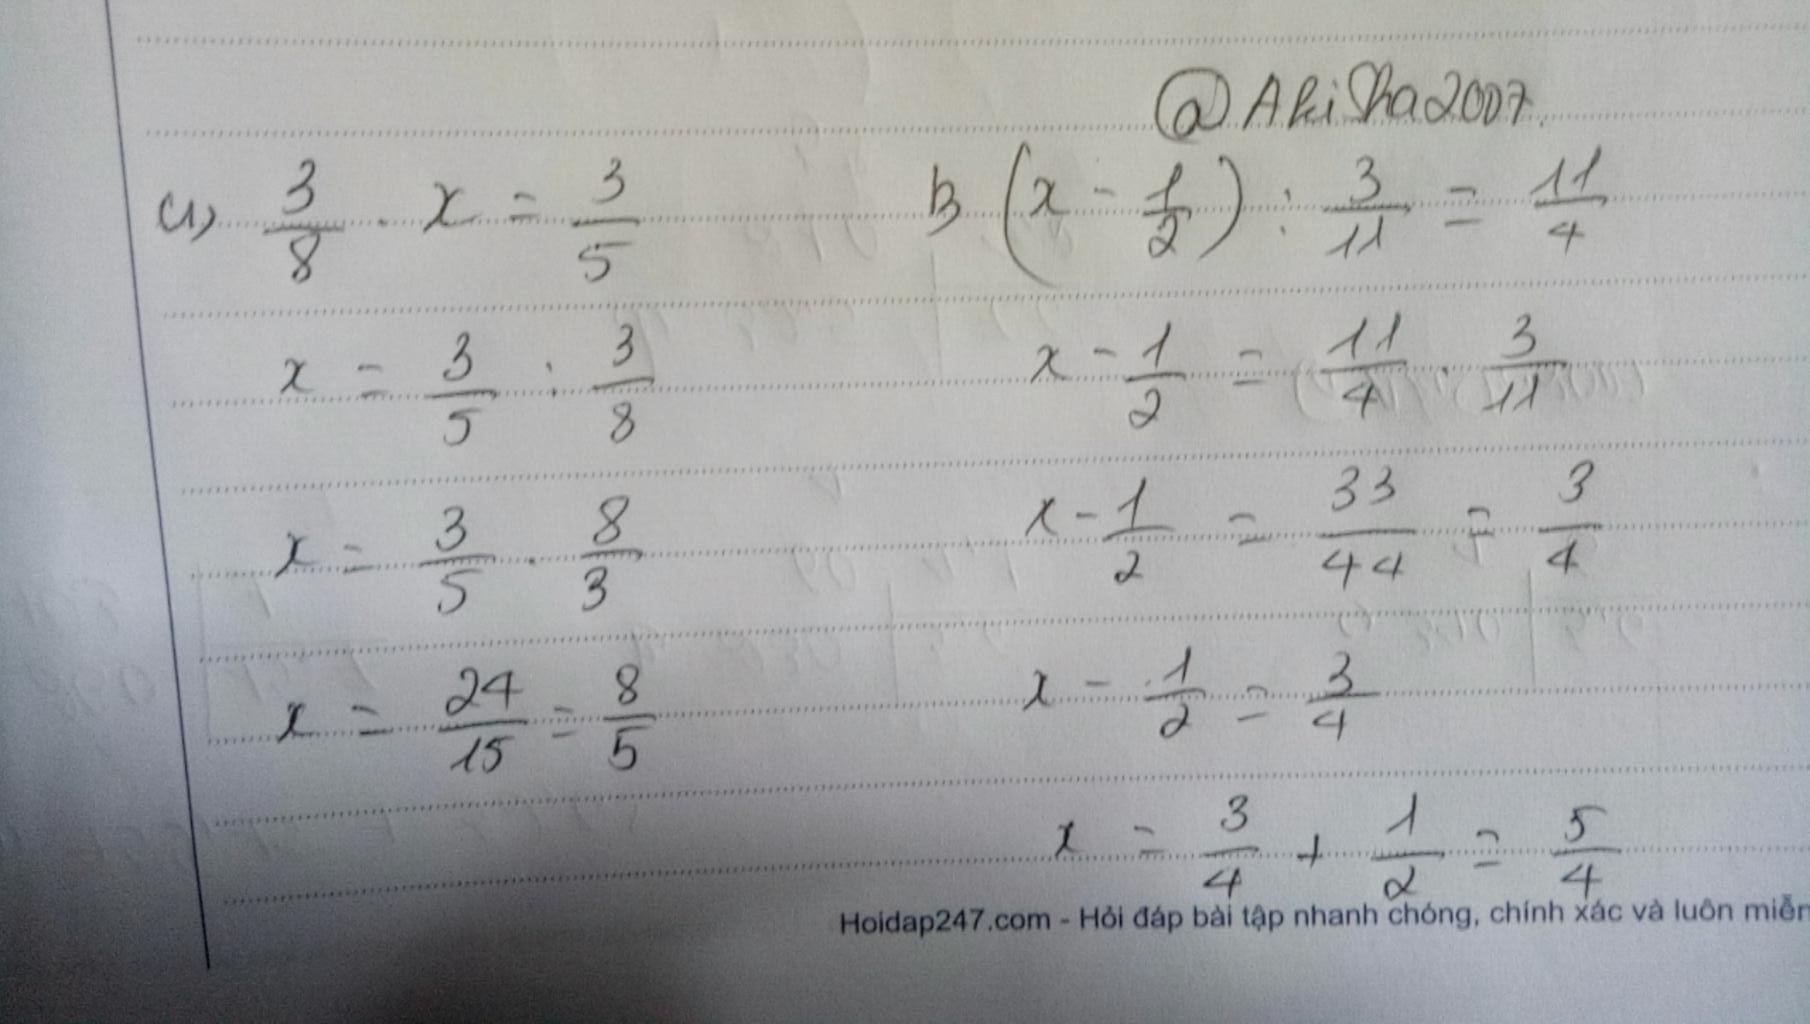 @AkiSha2007.
a) 3/8 . x = 3/5
x = 3/5 : 3/8
x = 3/5 . 8/3
x = 24/15 = 8/5
b) (x - 1/2) : 3/11 = 11/4
x - 1/2 = 11/4 . 3/11
x - 1/2 = 33/44 = 3/4
x - 1/2 = 3/4
x = 3/4 + 1/2 = 5/4
Hoidap247.com - Hỏi đáp bài tập nhanh chóng, chính xác và luôn miễn